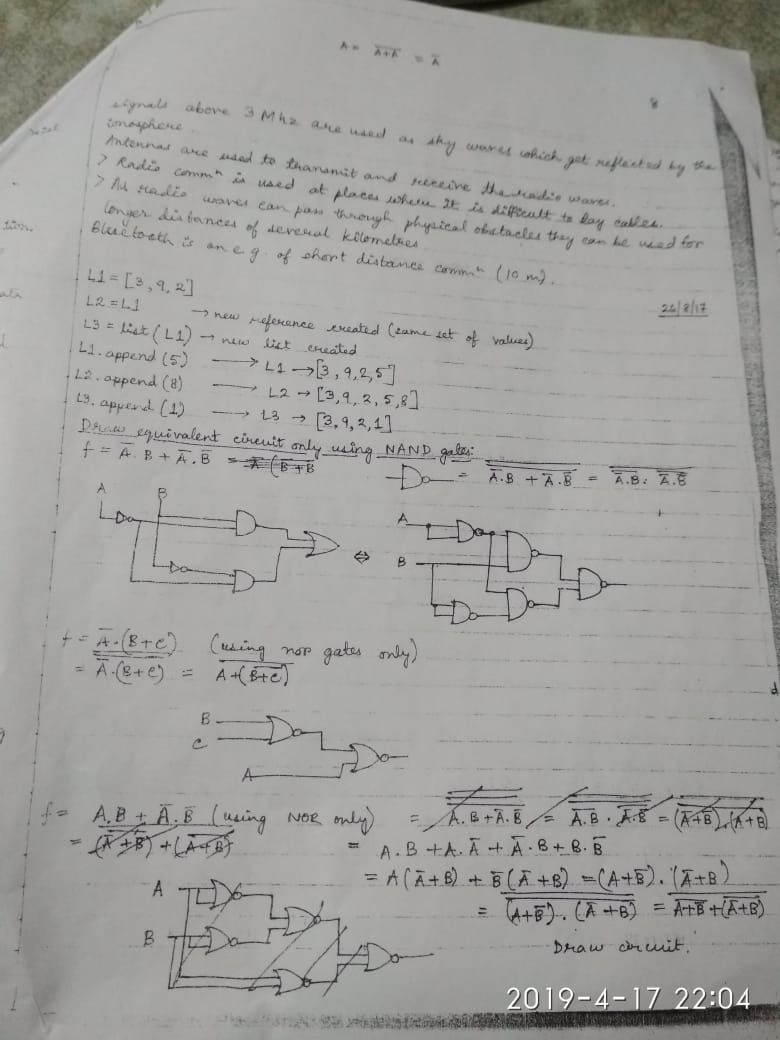 A = \overline{A+A} = Ā
8
signals above 3 Mhz are used as sky waves which get reflected by the
ionosphere.
Antennas are used to transmit and receive the radio waves.
> Radio commⁿ is used at places where it is difficult to lay cables.
> As radio waves can pass through physical obstacles they can be used for
longer distances of several kilometres
Bluetooth is an e.g. of short distance commⁿ (10 m).
26/8/17
L1 = [3, 9, 2]
L2 = L1 → new reference created (same set of values)
L3 = list(L1) → new list created
L1.append(5) → L1 → [3, 9, 2, 5]
L2.append(8) → L2 → [3, 9, 2, 5, 8]
L3.append(1) → L3 → [3, 9, 2, 1]
Draw equivalent circuit only using NAND gates:
f = Ā.B + Ā.B̄ = Ā(B̄+B
= Ā.B + Ā.B̄ = Ā.B . Ā.B̄
A B
A
B
f = Ā.(B+C) (using nor gates only)
= Ā.(B+C) = A+(B+C)
B
C
A
f = A.B + Ā.B̄ (using NOR only) = A.B + Ā.B̄ = A.B . Ā.B̄ = (Ā+B̄).(A+B)
= (Ā+B̄)+(A+B) = A.B + A.Ā + Ā.B + B.B̄
= A(Ā+B) + B̄(Ā+B) = (A+B̄).(Ā+B)
= (A+B̄).(Ā+B) = A+B̄+(Ā+B)
A
B
Draw circuit.
2019-4-17 22:04